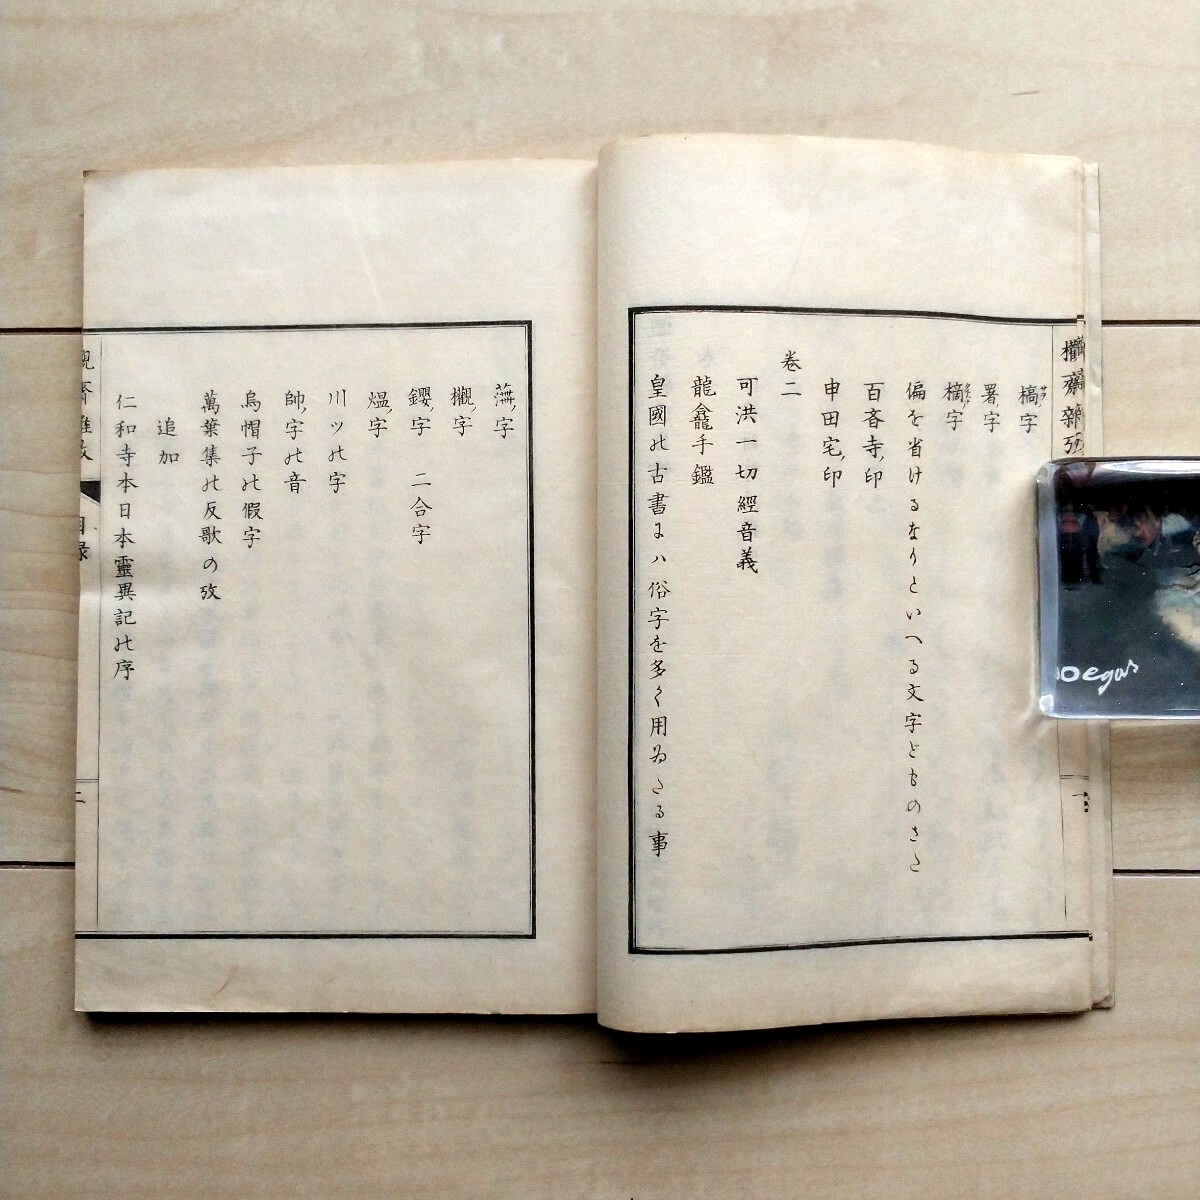 槁ノ字
署ノ字
樀ノ字
偏を省けるなりといへる文字どものさた
百吝寺ノ印
申田宅ノ印
巻二
可洪一切經音義
龍龕手鑑
皇國の古書にハ俗字を多く用ゐたる事
ノ字
櫬ノ字
鑍ノ字 二合字
熅ノ字
川ツの字
帥ノ字の音
烏帽子の假字
萬葉集の反歌の攷
追加
仁和寺本日本靈異記の序
目録
二
一
oegar